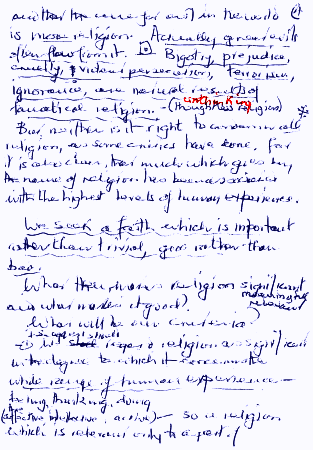 another the cure for evil in the world
is more religion. Actually great evils
often flow from it. Bigotry, prejudice,
cruelty, violent persecution, terrorism,
ignorance, are natural results of
fanatical religion. (Thoughtless religion)
unthinking
But neither is it right to condemn all
religion, as some critics have done. For
it is also clear, that much which goes by
the name of religion has been associated
with the highest levels of human experience.
We seek a faith which is important
rather than trivial, good rather than
bad.
What then makes religion significant
and what makes it good?
meaningful
relevant
What will be our criteria?
regard religion as significant
in the degree to which it
whole range of human experience —
feeling, thinking, doing
(affective, intellective, active) — so a religion
which is relevant only to a part of